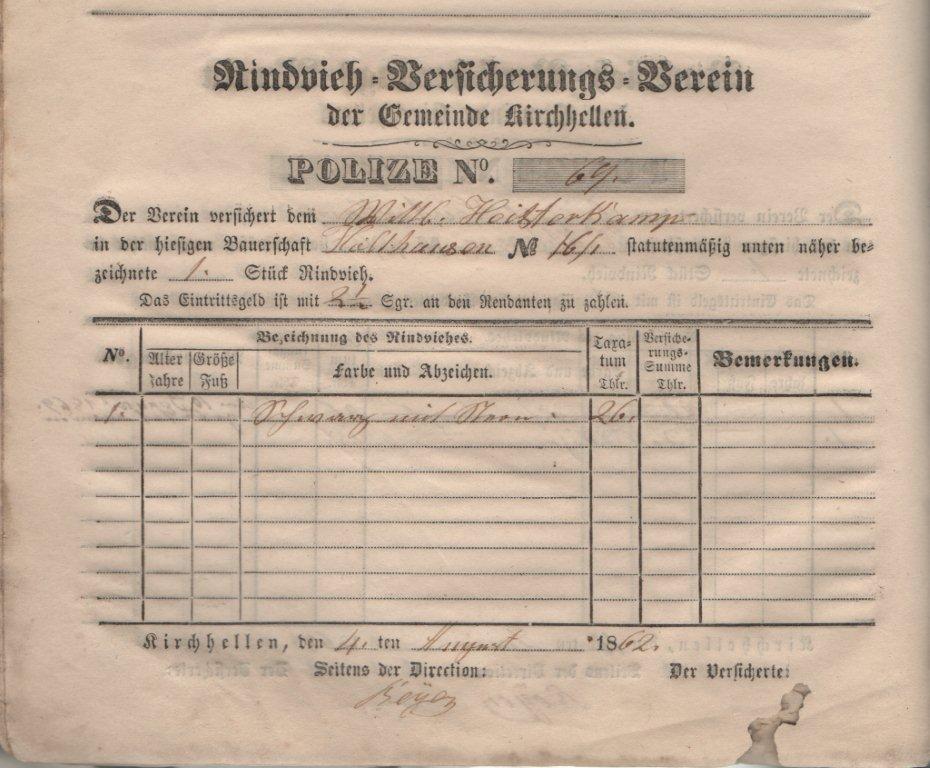 Rindvieh-Versicherungs-Verein
der Gemeinde Kirchhellen.
POLIZE No. 69.
Der Verein versichert dem Wilh. Heitkamp
in der hiesigen Bauerschaft Holthausen № 16/1 statutenmäßig unten näher be-
zeichnete 1. Stück Rindvieh.
Das Eintrittsgeld ist mit 2 1/2 Sgr. an den Rendanten zu zahlen.
No.
Bezeichnung des Rindviehes.
Alter Jahre
Größe Fuß
Farbe und Abzeichen.
Taxa-
tum
Thlr.
Versiche-
rungs-
Summe
Thlr.
Bemerkungen.
1. Schwarz mit Stern. 26.
Kirchhellen, den 4. ten August 1862.
Seitens der Direction: Der Versicherte: